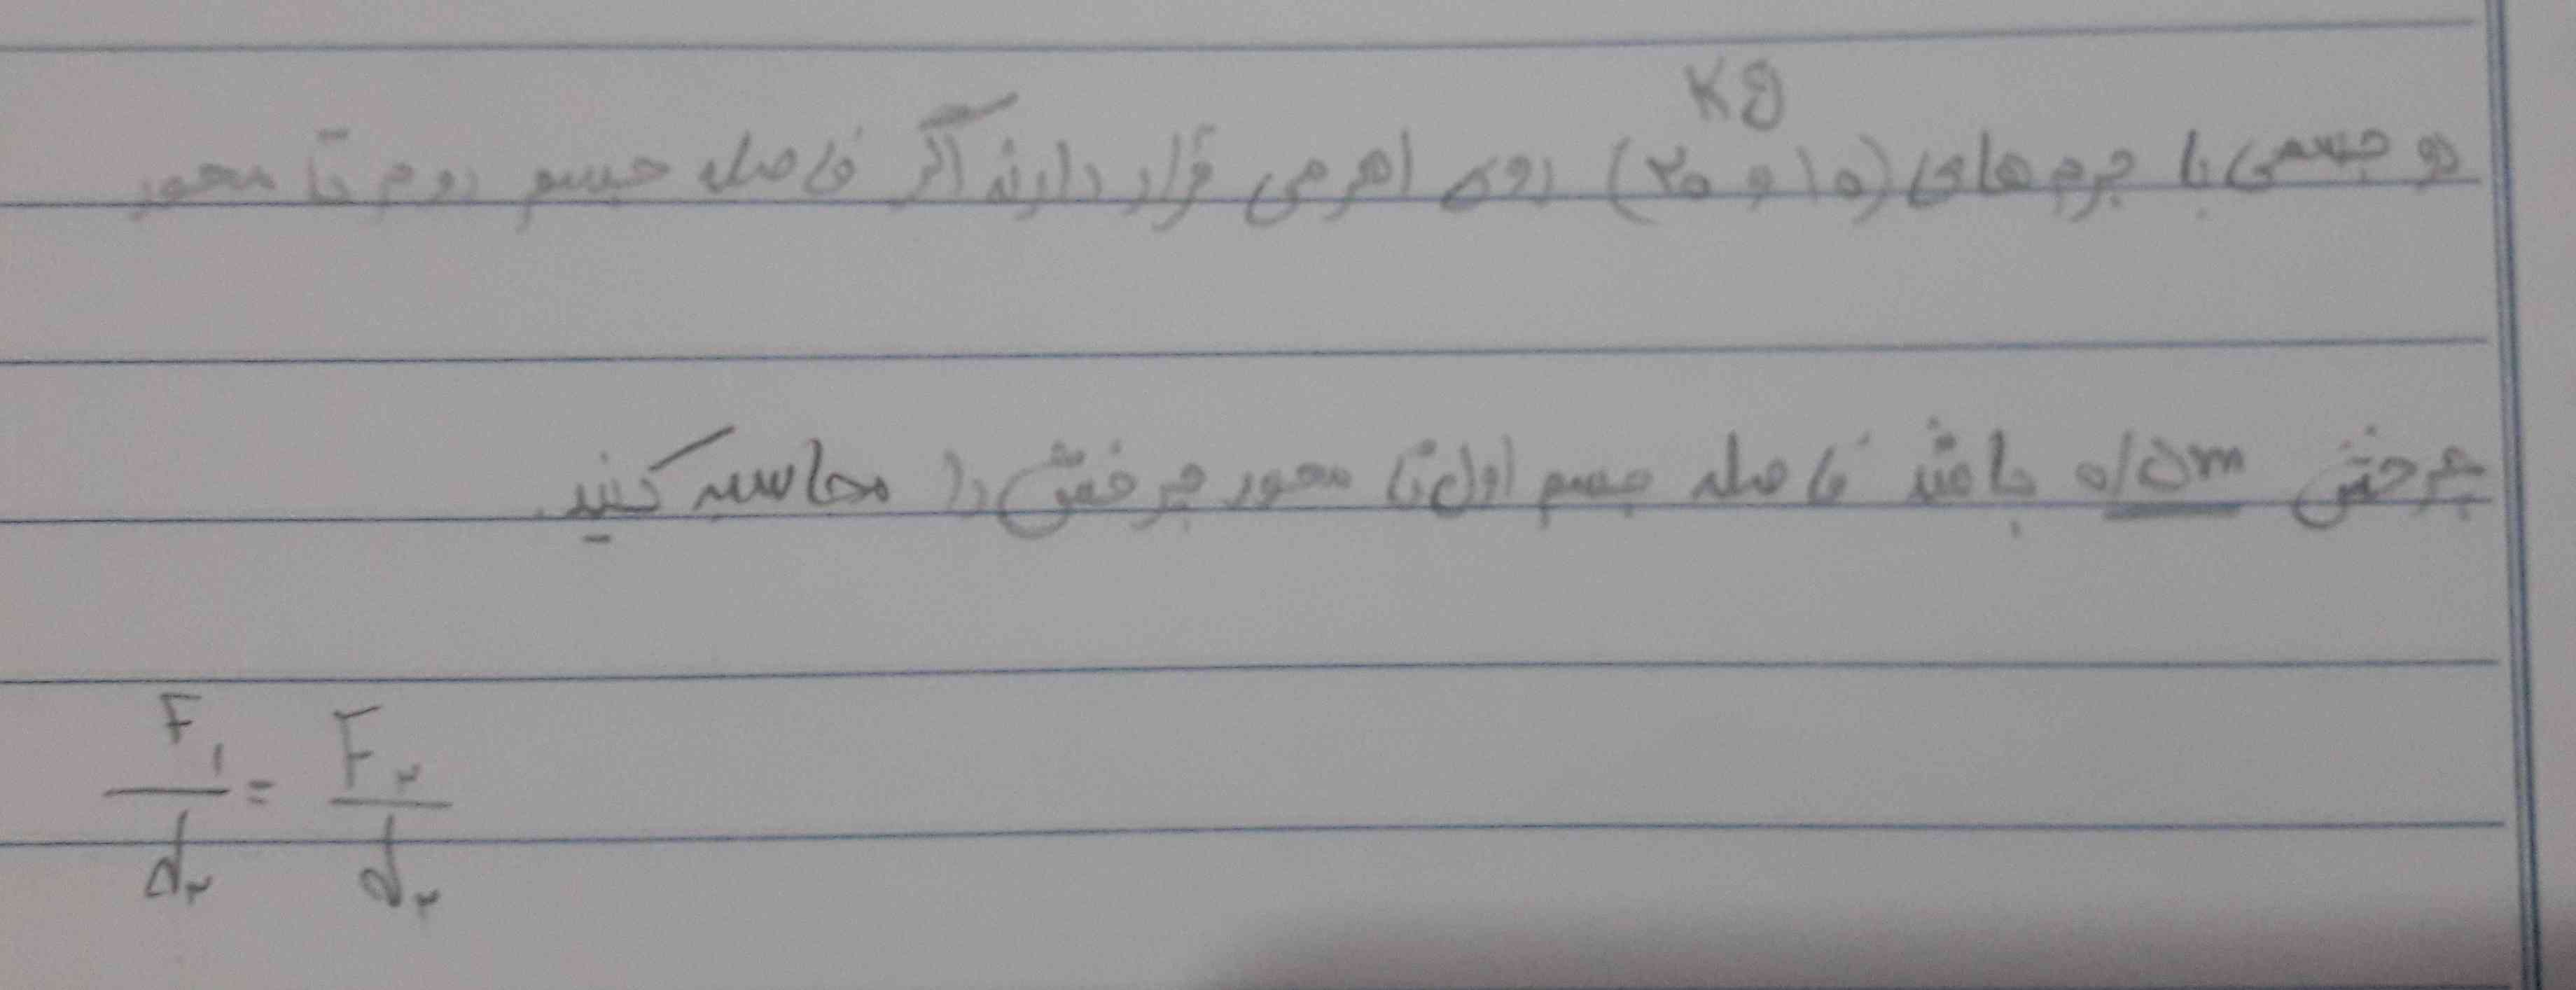 Kg
دو جسمی با جرم های (۱۰ و ۲۰) روی اهرمی قرار دارند اگر فاصله جسم دوم تا محور
چرخش ۰/۵m باشد فاصله جسم اول تا محور چرخش را محاسبه کنید.
F۱/d۲ = F۲/d۲